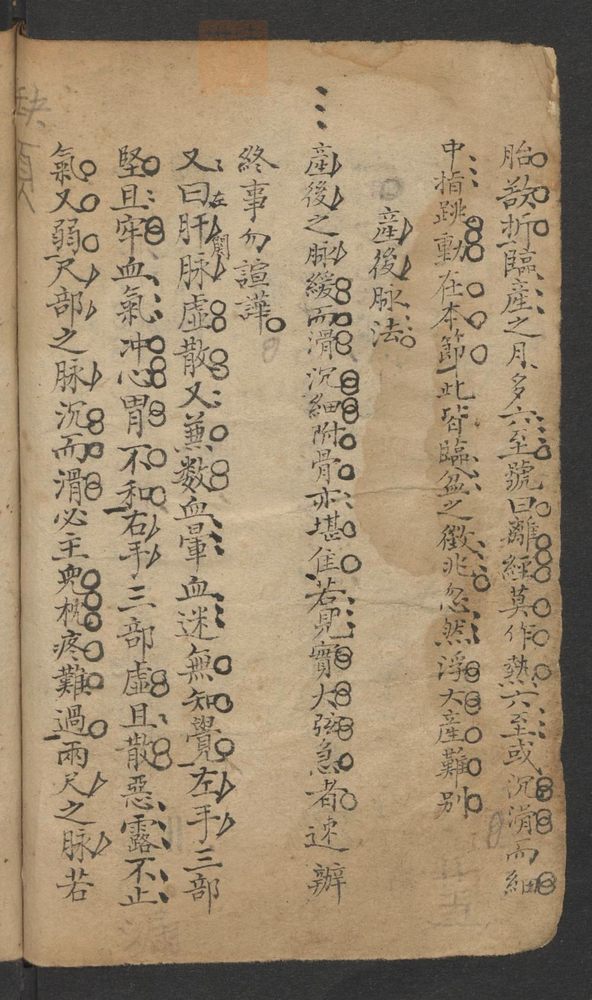 胎欲折臨產之月多六至號曰離經莫作熱六至或沉滑而細
中指跳動在本節此皆臨盆之徵兆忽然浮大產難別
產後脉法
產後之脉緩而滑沉細附骨亦堪佳若見實大弦急者速辦
終事勿諠譁
又曰左關肝脉虛散又兼數血暈血迷無知覺左手三部
堅且牢血氣冲心胃不和右手三部虛且散惡露不止
氣又弱尺部之脉沉而滑必主兒枕疼難過兩尺之脉若